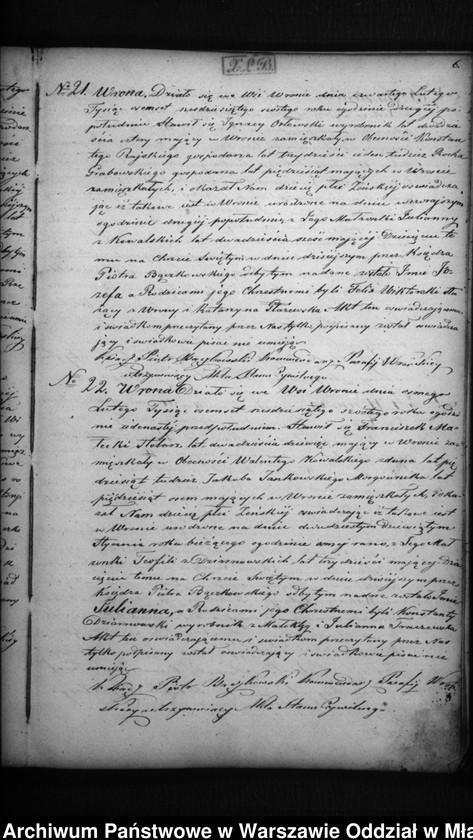 6.
No 21. Wrona. Działo się we Wsi Wronie dnia czwartego Lutego
Tysiąc osmset sześdziesiątego szóstego roku o godzinie drugiej po
południu Stawił się Ignacy Orłowski wyrobnik lat dwadzie
ścia mający w Wronie zamięszkały, w Obecności Konstan
tego Rujskiego gospodarza lat trzydzieści i ieden tudzież Rocha
Grabowskiego gospodarza lat pięćdziesiąt mających w Wronie
zamięszkałych, i okazał Nam dziecię płci Żeńskiej oświadcza
jąc iż takowe iest w Wronie urodzone na dniu wczorajszym
o godzinie drugiej popołudniu, z Jego Małżonki Julianny
z Kowalskich lat dwadzieścia sześć mającej Dziecięciu te
mu na Chrzcie Świętym w dniu dzisiejszym przez Księdza
Piotra Bączkowskiego odbytym nadane zostało Imie Jó
zefa a Rodzicami jego Chrzestnemi byli Felix Witkoski słu
żący z Wrony i Katarzyna Akt ten oświadczającemu
i świadkom przeczytany przez Nas tylko podpisany został oświadcza
jący i świadkowie pisać nie umieją
Piotr Parafij Wrońskiej
Utrzymujący Akta Stanu Cywilnego
No 22. Wrona Działo się we Wsi Wronie dnia osmego
Lutego Tysiąc osmset sześdziesiątego szóstego roku o godzi
nie iedenastej przedpołudniem. Stawił się Franciszek Ma
łecki Stolarz lat dwadzieścia dziewięć mający w Wronie za
mięszkały w Obecności Walentego Kowalskiego lat pię
dziesiąt tudzież Jakuba Jankowskiego Morgownika lat
pięćdziesiąt osm mających w Wronie zamięszkałych, i oka
zał Nam dziecię płci Żeńskiej oświadczając iż takowe iest
w Wronie urodzone na dniu dwudziestym Dziewiątym
Stycznia roku bieżącego o godzinie rano, z Jego Mał
żonki Teofili z Dziarnowskich lat trzydzieści mającej Dzie
cięciu temu na Chrzcie Świętym w dniu dzisiejszym przez
księdza Piotra Bączkowskiego odbytym nadane zostało Imie
Julianna, a Rodzicami jego Chrzestnemi byli Konstanty
Dziarnowski wyrobnik z i Julianna
Akt ten oświadczającemu i świadkom przeczytany przez Nas
tylko podpisany został oświadczający i świadkowie pisać nie
umieją
Piotr Parafij Wroń
skiej utrzymujący Akta Stanu Cywilnego
Archiwum Państwowe w Warszawie Oddział w Mła